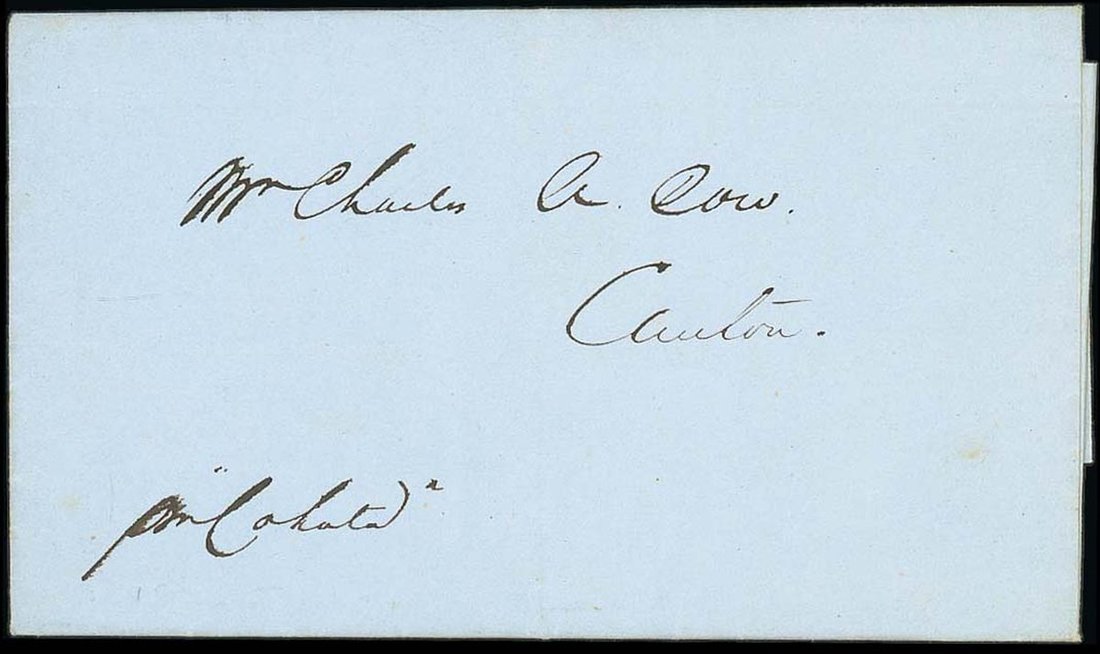 Mr Charles A. Low.
Canton.
pr "Cohota"